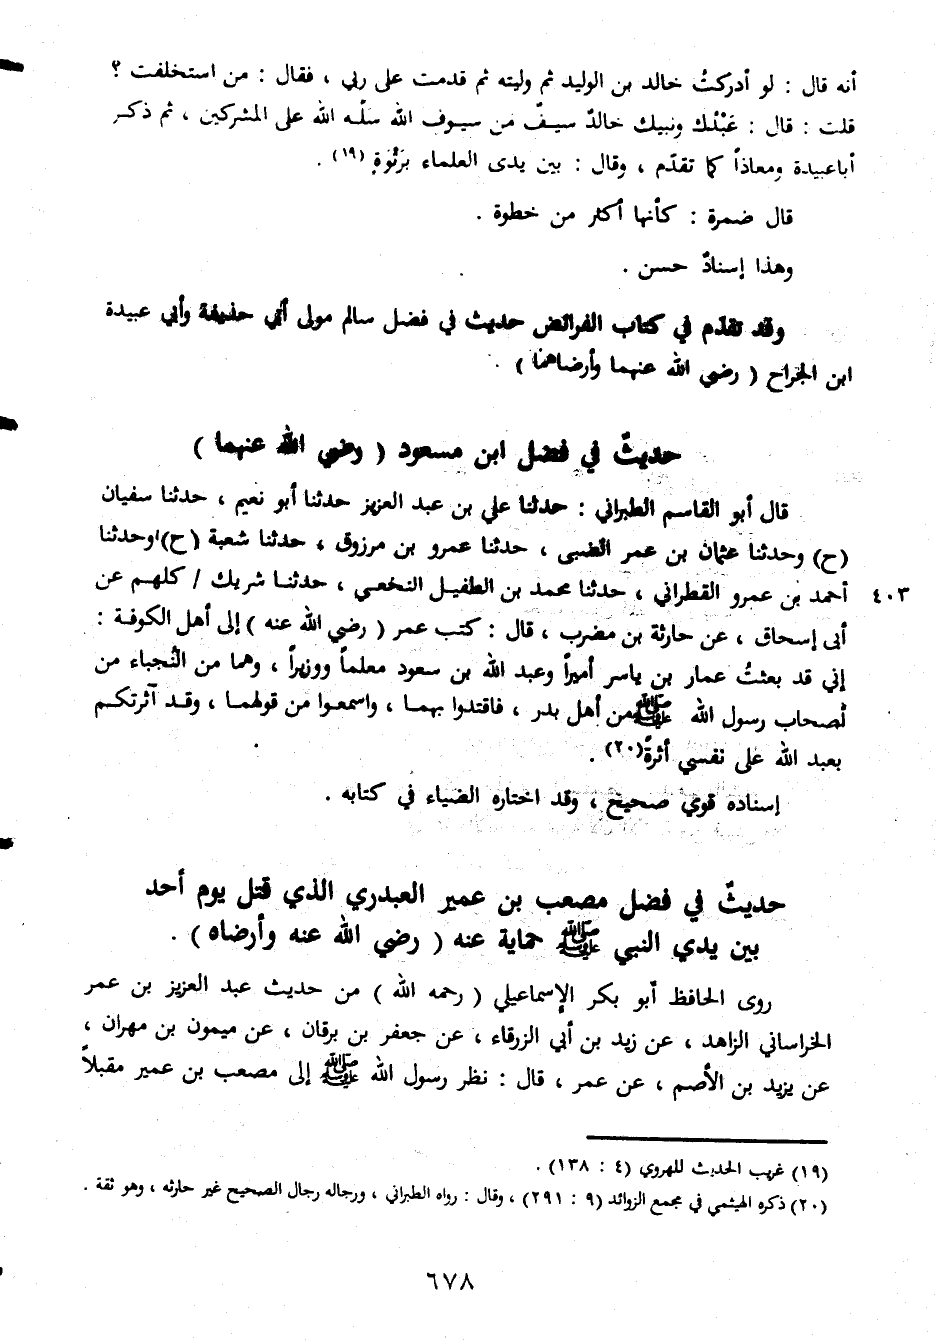 أنه قال : لو أدركتُ خالد بن الوليد ثم وليته ثم قدمت على ربي ، فقال : من استخلفت ؟
قلت : قال : عَبْدُك ونبيك خالدٌ سيفٌ من سيوف الله سلّه الله على المشركين ، ثم ذكر
أباعبيدة ومعاذاً كما تقدّم ، وقال : بين يدى العلماء بَرَتْوَةٍ (١٩) .
قال ضمرة : كأنها أكثر من خطوة .
وهذا إسنادٌ حسن .
وقد تقدّم في كتاب الفرائض حديث في فضل سالم مولى أبي حذيفة وأبي عبيدة
ابن الجراح ( رضي الله عنهما وأرضاهما ) .
حديثٌ في فضل ابن مسعود ( رضي الله عنهما )
قال أبو القاسم الطبراني : حدثنا علي بن عبد العزيز حدثنا أبو نعيم ، حدثنا سفيان
(ح) وحدثنا عثمان بن عمر الضبى ، حدثنا عمرو بن مرزوق ، حدثنا شعبة (ح) وحدثنا
أحمد بن عمرو القطراني ، حدثنا محمد بن الطفيل النخعي ، حدثنا شريك / كلهم عن ٤٠٣
أبى إسحاق ، عن حارثة بن مضرب ، قال : كتب عمر ( رضي الله عنه ) إلى أهل الكوفة :
إني قد بعثتُ عمار بن ياسر أميراً وعبد الله بن سعود معلماً ووزيراً ، وهما من النُجباء من
أصحاب رسول الله ﷺ من أهل بدر ، فاقتدوا بهما ، واسمعوا من قولهما ، وقد آثرتكم
بعبد الله على نفسي أثرةً (٢٠) .
إسناده قوي صحيح ، وقد اختاره الضياء في كتابه .
حديثٌ في فضل مصعب بن عمير العبدري الذي قتل يوم أحد
بين يدي النبي ﷺ حماية عنه ( رضي الله عنه وأرضاه ) .
روى الحافظ أبو بكر الإسماعيلي ( رحمه الله ) من حديث عبد العزيز بن عمر
الخراساني الزاهد ، عن زيد بن أبي الزرقاء ، عن جعفر بن برقان ، عن ميمون بن مهران ،
عن يزيد بن الأصم ، عن عمر ، قال : نظر رسول الله ﷺ إلى مصعب بن عمير مقبلاً
(١٩) غريب الحديث للهروي (٤ : ١٣٨) .
(٢٠) ذكره الهيثمي في مجمع الزوائد (٩ : ٢٩١) ، وقال : رواه الطبراني ، ورجاله رجال الصحيح غير حارثه ، وهو ثقة .
٦٧٨